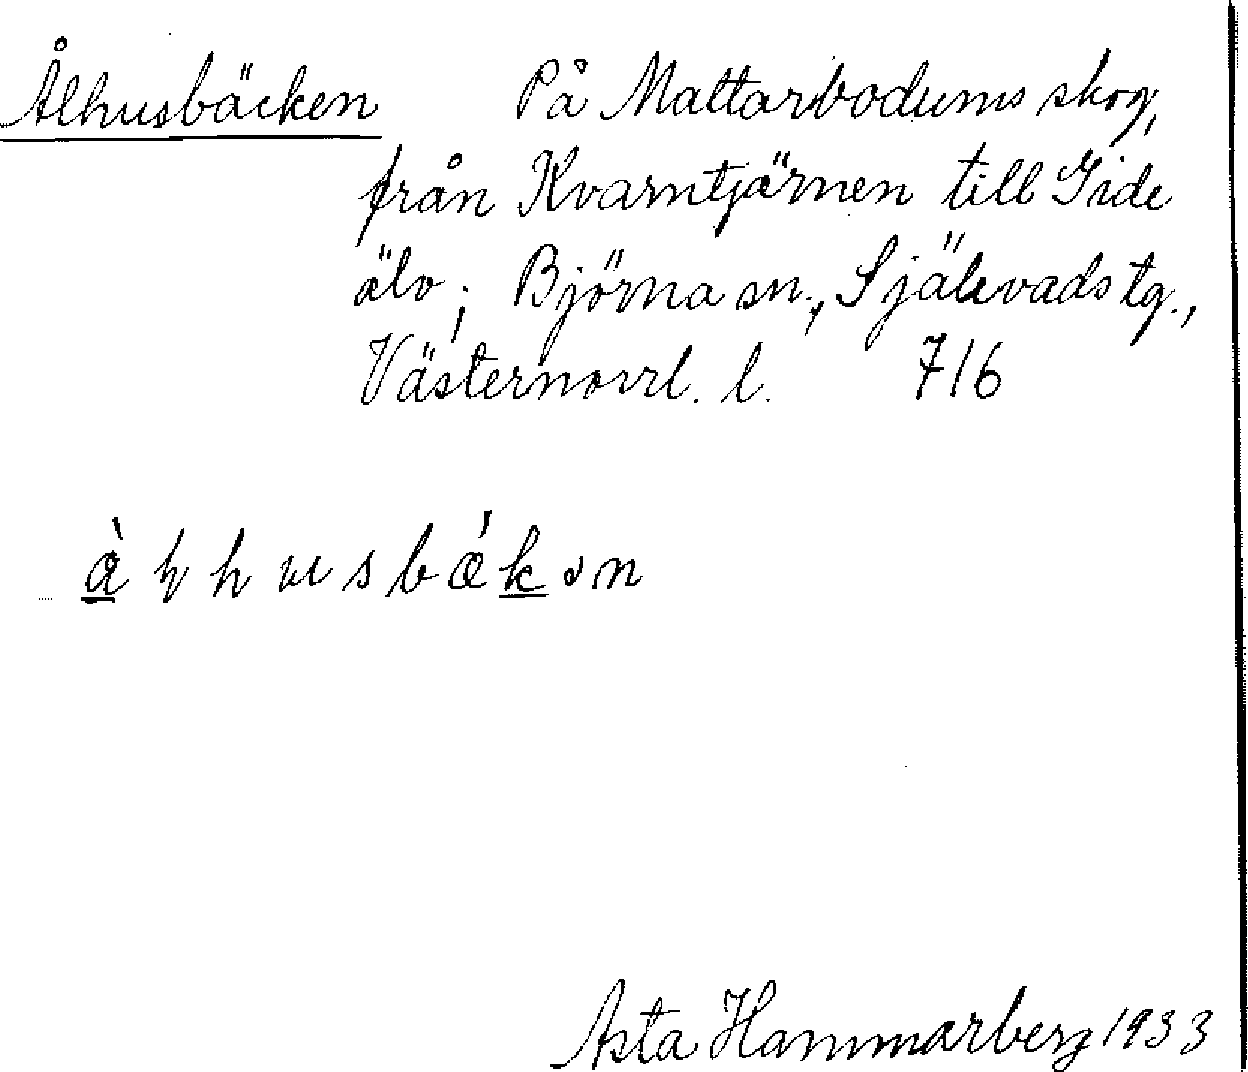 Ålhusbäcken På Mattarbodums skog,
från Kvarntjärnen till Gide
älv; Björna sn., Själevads tg.,
Västernorrl. l. 716
Asta Hammarberg 1933